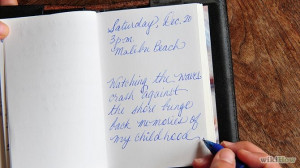 Saturday, Dec. 20
3p.m.
Malibu Beach
Watching the waves
crash against
the shore brings
back memories of
my childhood
wikiHow